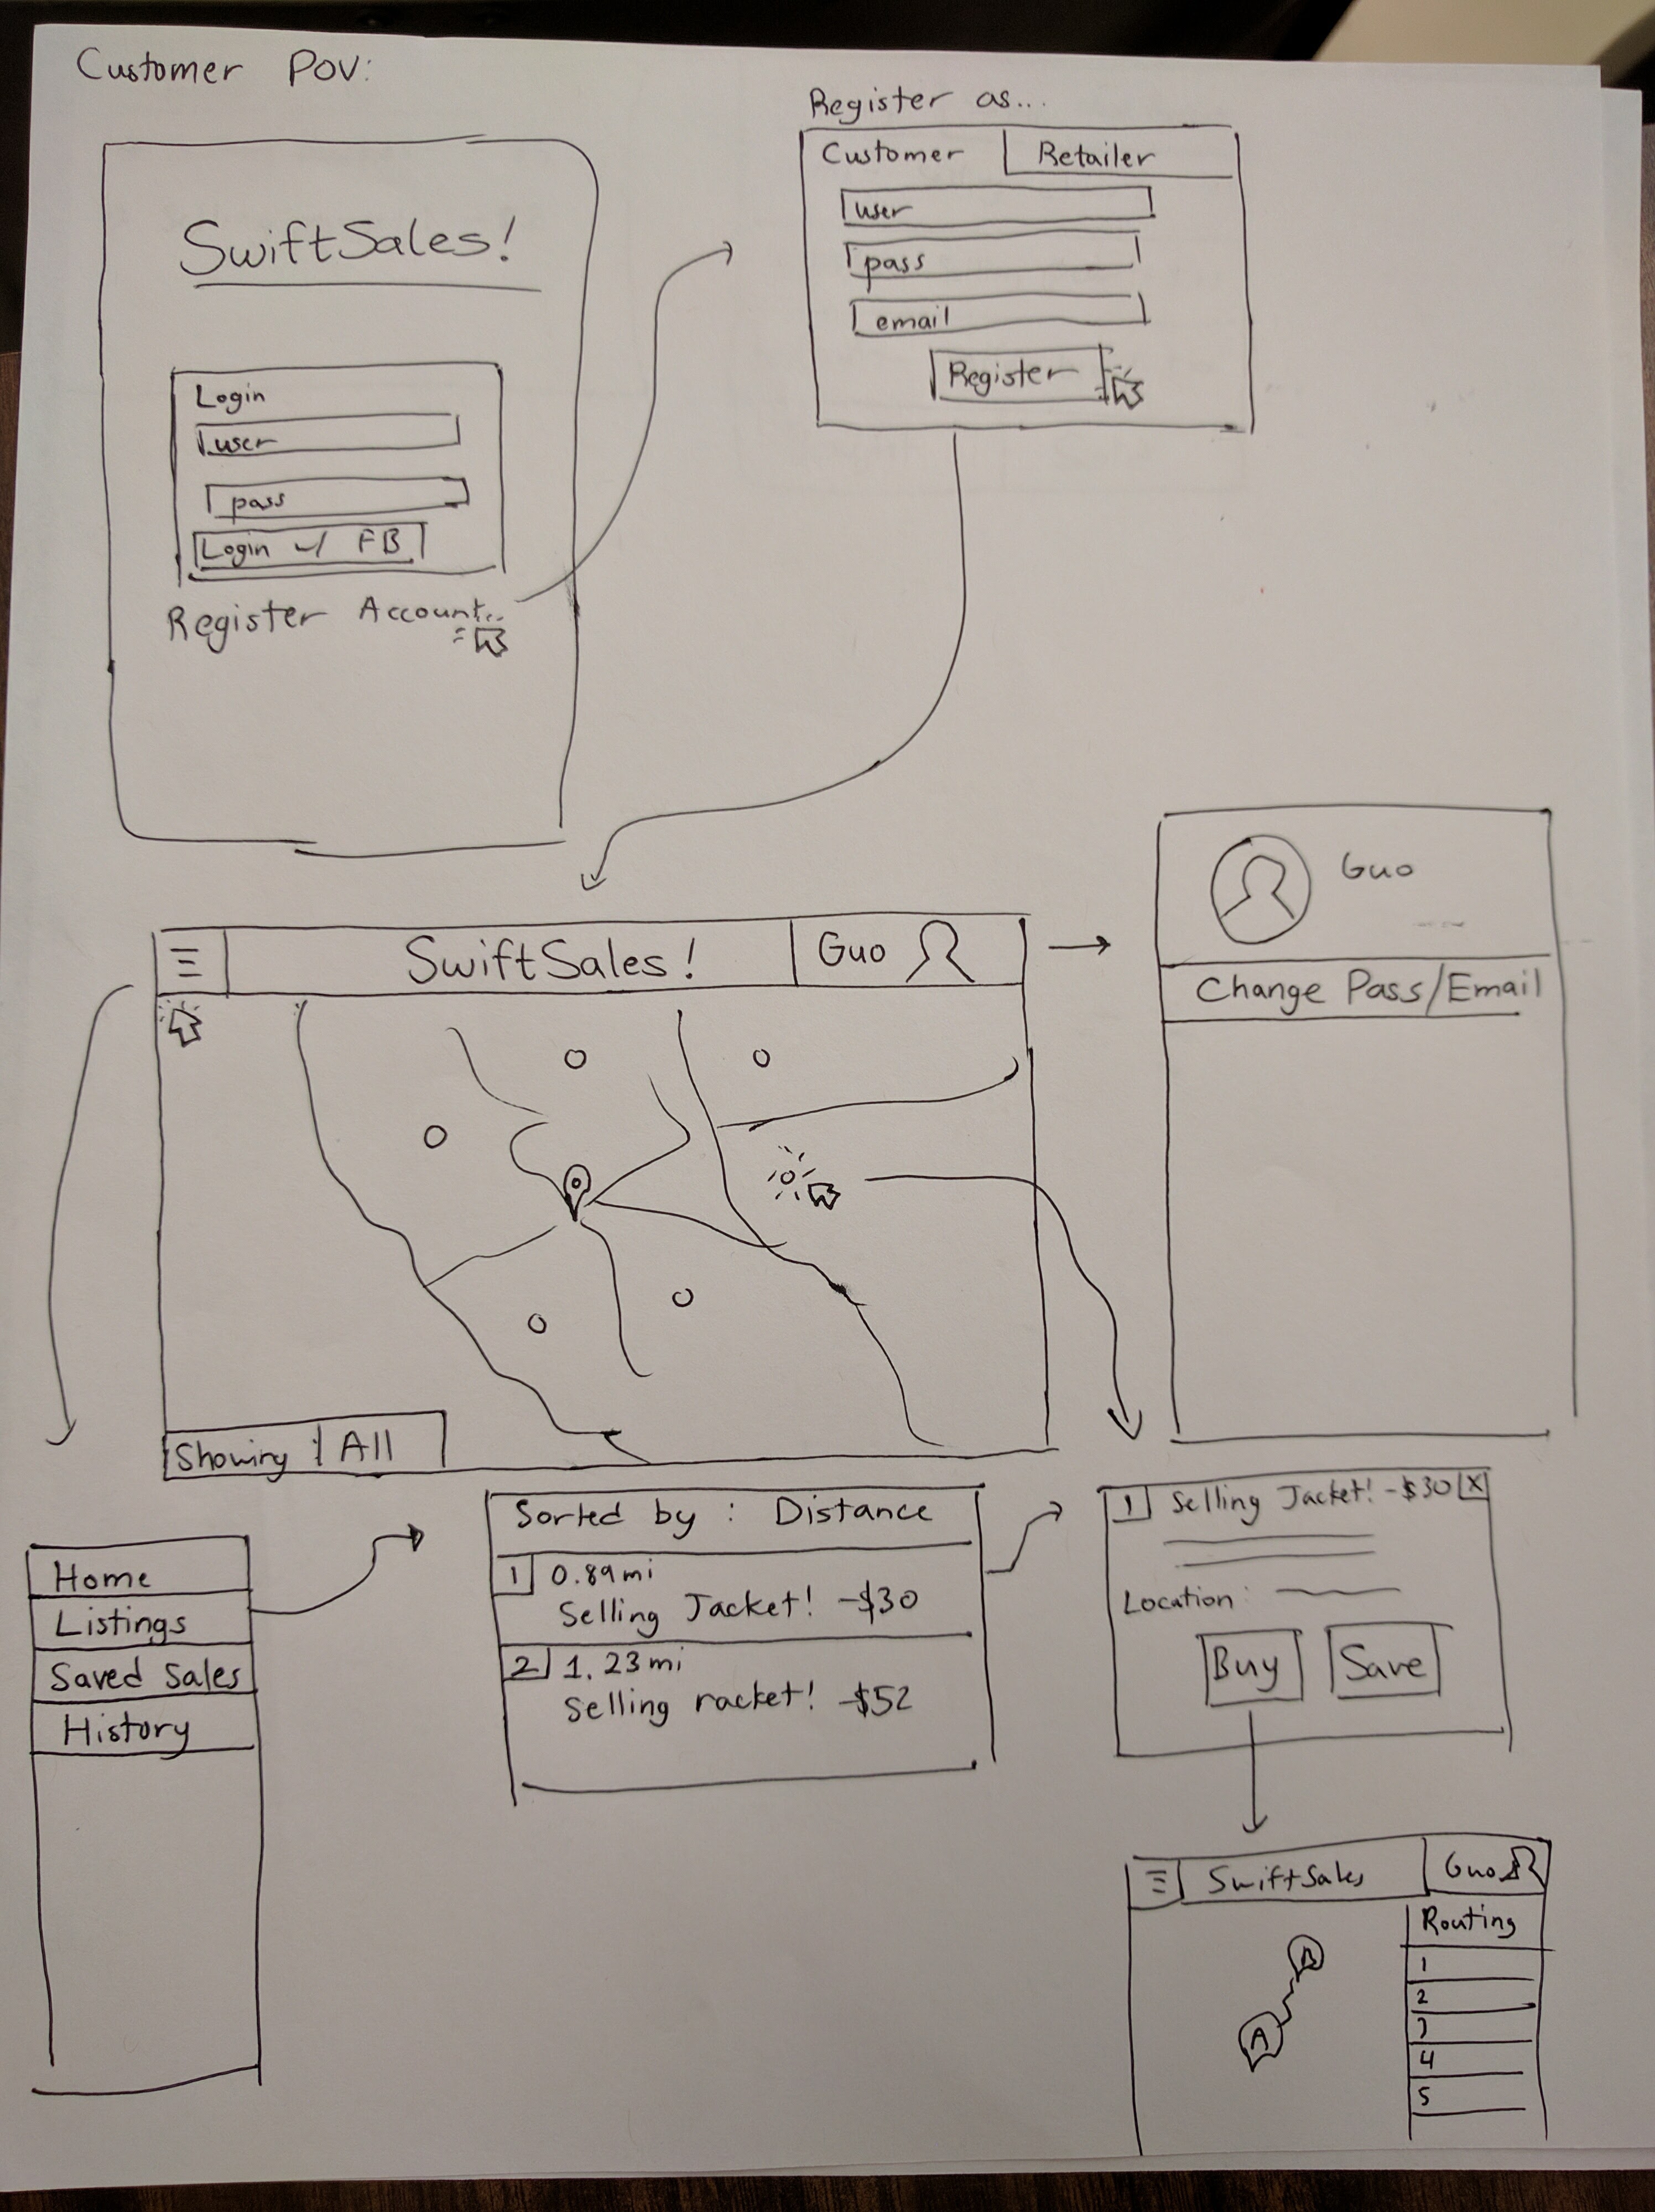 Customer POV:
SwiftSales!
Login
user
pass
Login w/ FB
Register Account...
Register as...
Customer Retailer
user
pass
email
Register
SwiftSales! Guo
Showing : All
Guo
Change Pass/Email
Home
Listings
Saved Sales
History
Sorted by : Distance
1 0.89mi
Selling Jacket! -$30
2 1.23mi
Selling racket! -$52
1 Selling Jacket! -$30 X
Location:
Buy Save
SwiftSales Guo
Routing
1
2
3
4
5
B
A